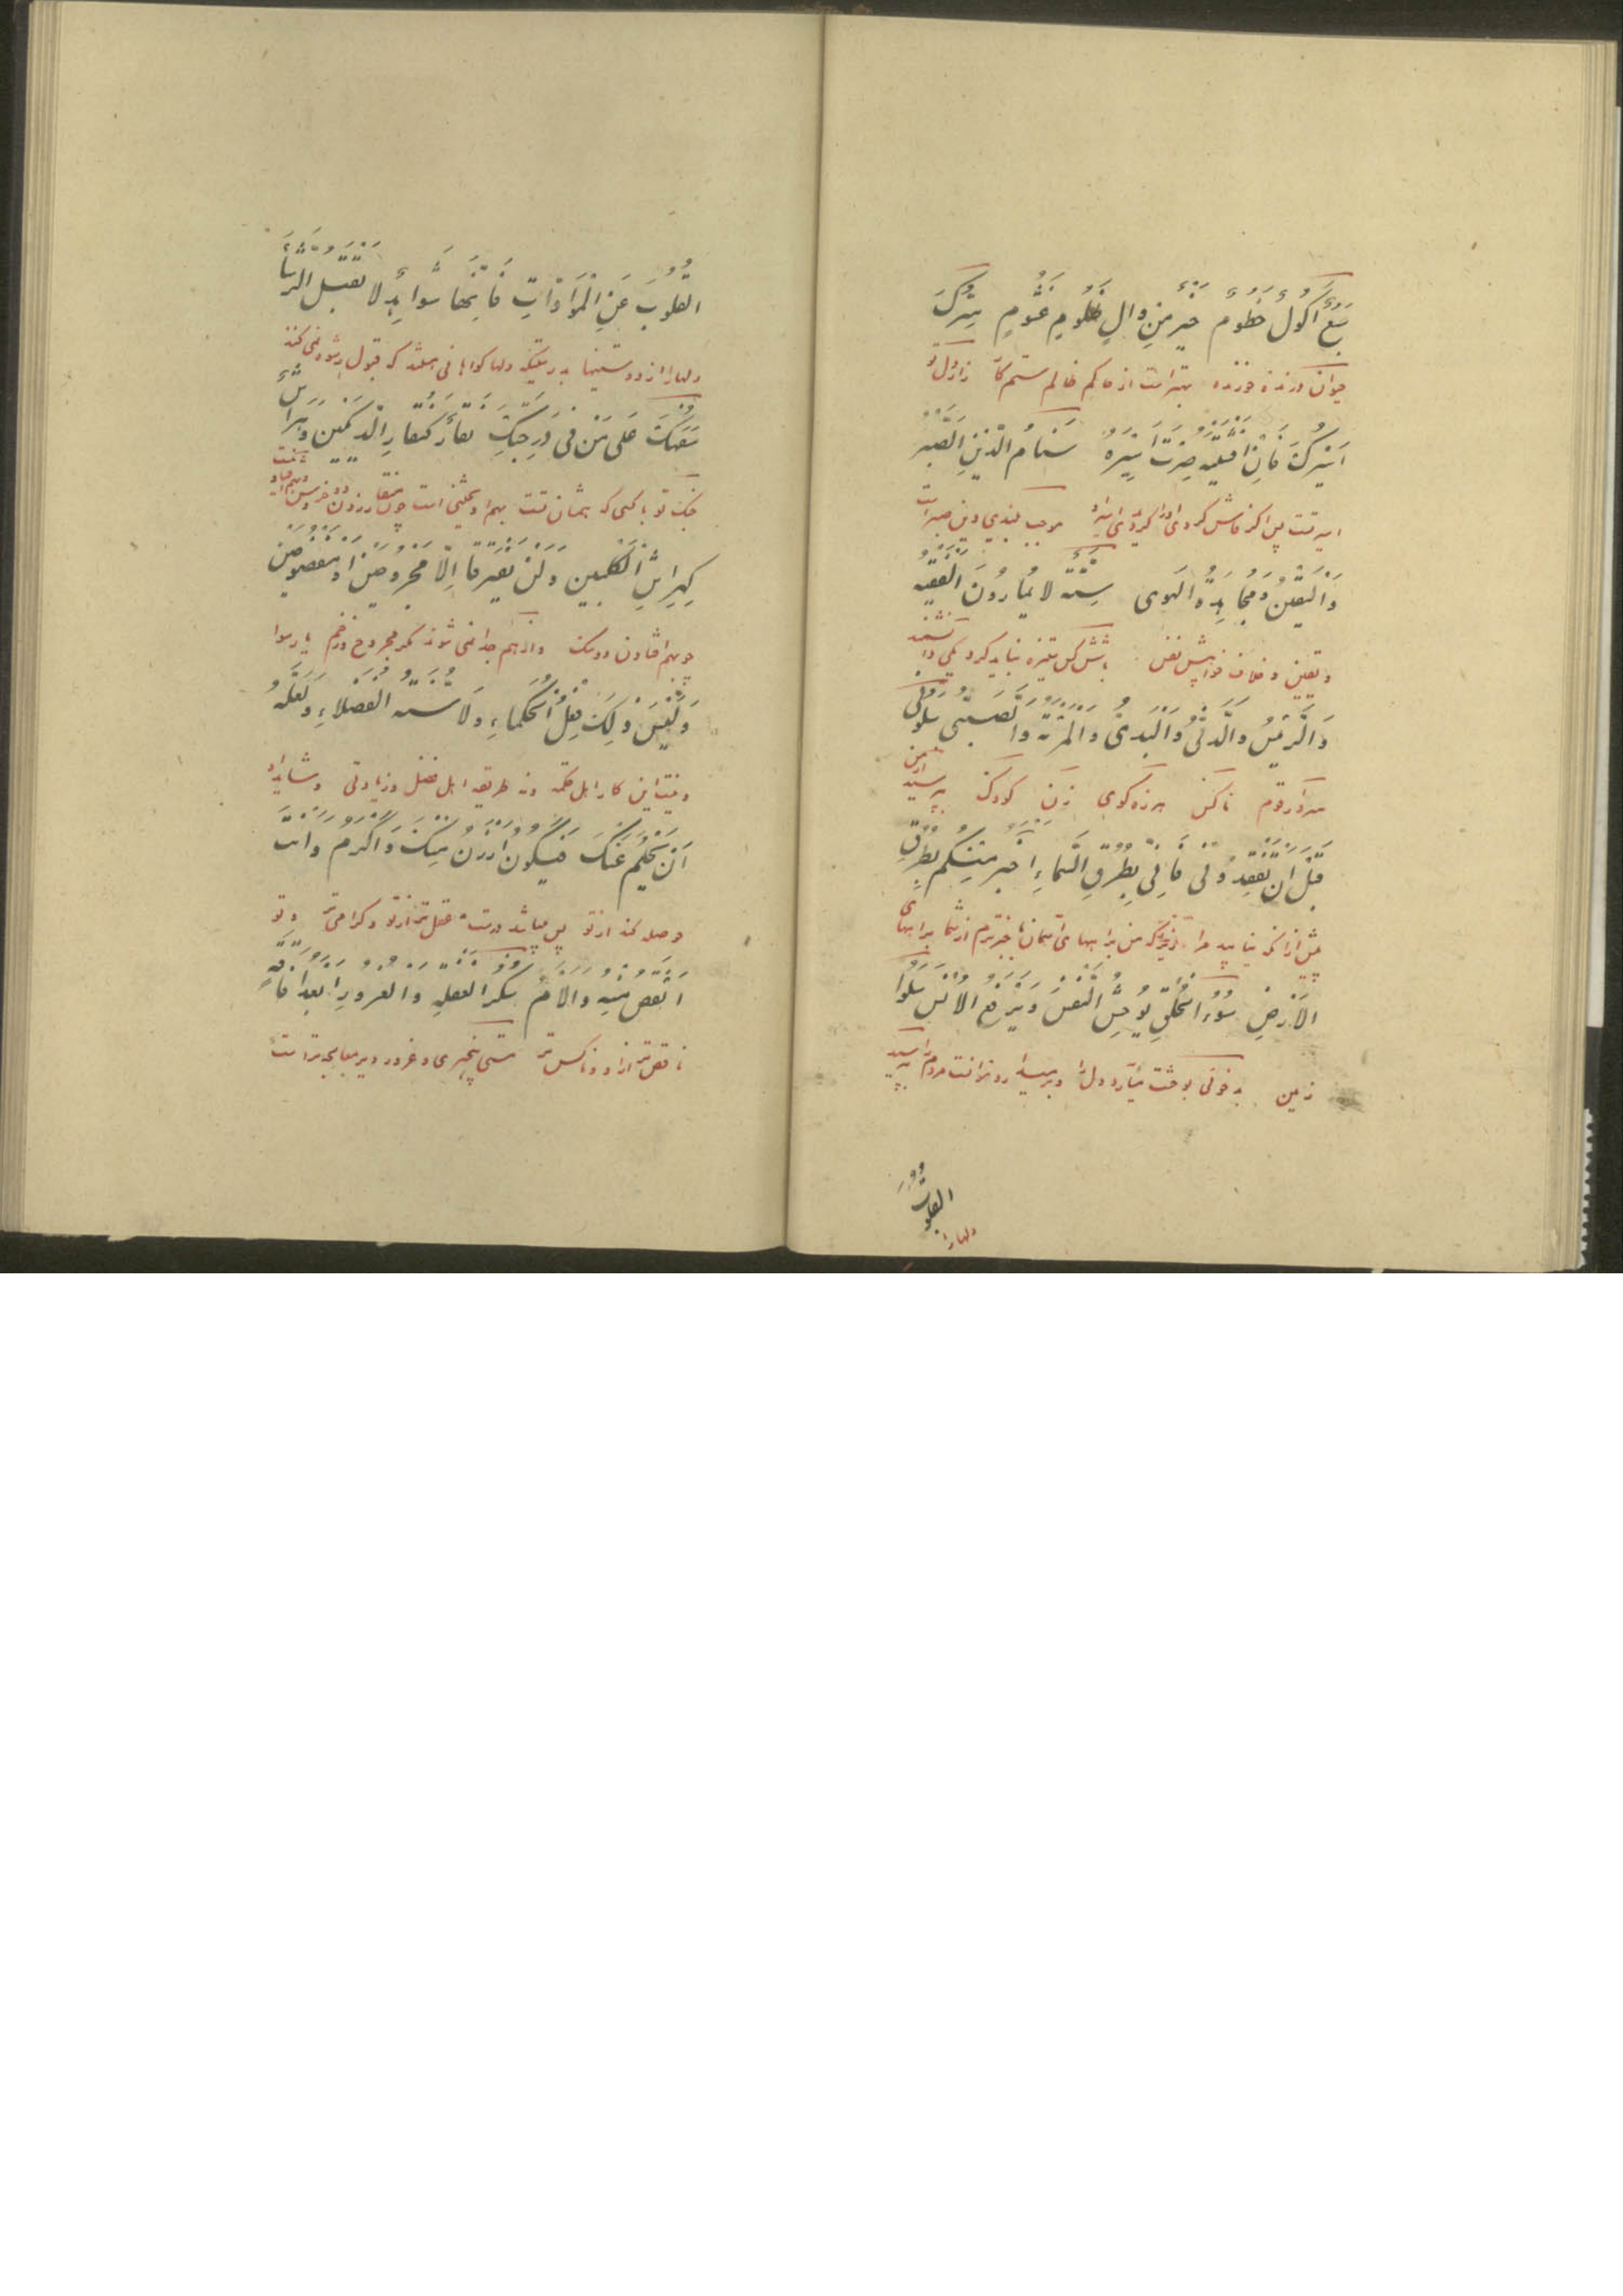 سَبُعٌ اَكُولٌ حَطُومٌ خَيْرٌ مِن والٍ ظَلُومٍ غَشُومٍ سِرُّكَ
حیوان درنده خورنده بهتر است از حاکم ظالم ستم کار راز دل تو
اَسيرُكَ فَاِنْ اَفْشَيْتَهُ صِرْتَ اَسيرَهُ سَنامُ الدّينِ الصَّبْرُ
اسیر تست پس اگر فاش کردی اورا گردی اسیر او موجب بلندی دین صبر است
وَالْيَقينُ وَمُجاهَدَةُ الْهَوى سِتَّةٌ لا يُمارُونَ الْفَقيهُ
و یقین و خلاف خواهش نفس باشش کس ستیزه نباید کرد یکی دانشمند
وَالرَّئيسُ وَالدَّنِيُّ وَالْبَذِيُّ وَالْمَرْئَةُ وَالصَّبِيُّ سَلُوني
سردار قوم ناکس هرزه گوی زن کودک بپرسید از من
قَبْلَ اَنْ تَفْقِدُوني فَاِنّي بِطُرُقِ السَّماءِ اَخْبَرُ مِنْكُم بِطُرُقِ
پیش از آنکه نیابید مرا زیراکه من براههای آسمان باخبرترم از شما براههای
الاَرْضِ سُوءُ الْخُلْقِ يُوحِشُ النَّفْسَ وَيَرْفَعُ الاُنْسَ سَلُوا
زمین بدخوئی بوحشت میآرد دل را و برمیدارد انست مردم را بپرسید
القلوبَ
دلها را
القُلُوبَ عَنِ الْمَوَدّاتِ فَاِنَّها شَواهِدُ لا تَقْبَلُ الرُّشا
دلها را از دوستیها بدرستیکه دلها گواهانی هستند که قبول رشوه نمی کنند
سَفَهُكَ عَلى مَنْ في دَرَجَتِكَ نِقارٌ كَنِقارِ الدّيكَيْنِ وَهِراشٌ
جنگ تو با کسی که بشان تست بهم آویختنی است چون منقار زدن دو خروس
كَهِراشِ الْكَلْبَيْنِ وَلَنْ يَفْتَرِقا اِلّا مَجْرُوحَيْنِ اَوْ مَفْضُوحَيْنِ
چون بهم افتادن دو سگ و از هم جدا نمی شوند مگر مجروح و زخم یا رسوا
وَلَيْسَ ذلِكَ فِعْلُ الْحُكَماءِ وَلا سُنَّةُ الْفُضَلاءِ وَلَعَلَّهُ
و نیست این کار اهل حکمة و نه طریقه اهل فضل و زیادتی و شاید او
اَنْ يَحْلُمَ عَنْكَ فَيَكُونُ اَوْزَنَ مِنْكَ وَاَكْرَمَ وَاَنْتَ
حوصله کند از تو پس میباشد درست عقل تر از تو و گرامی تر و تو
اَنْقَصُ مِنْهُ وَاَلْاَمُ سُكْرُ الْغَفْلَةِ وَالْغُرُورِ اَبْعَدُ اِفاقَةً
ناقص تر از او و ناکس تر مستی بیخبری و غرور دیر معالجه تر است